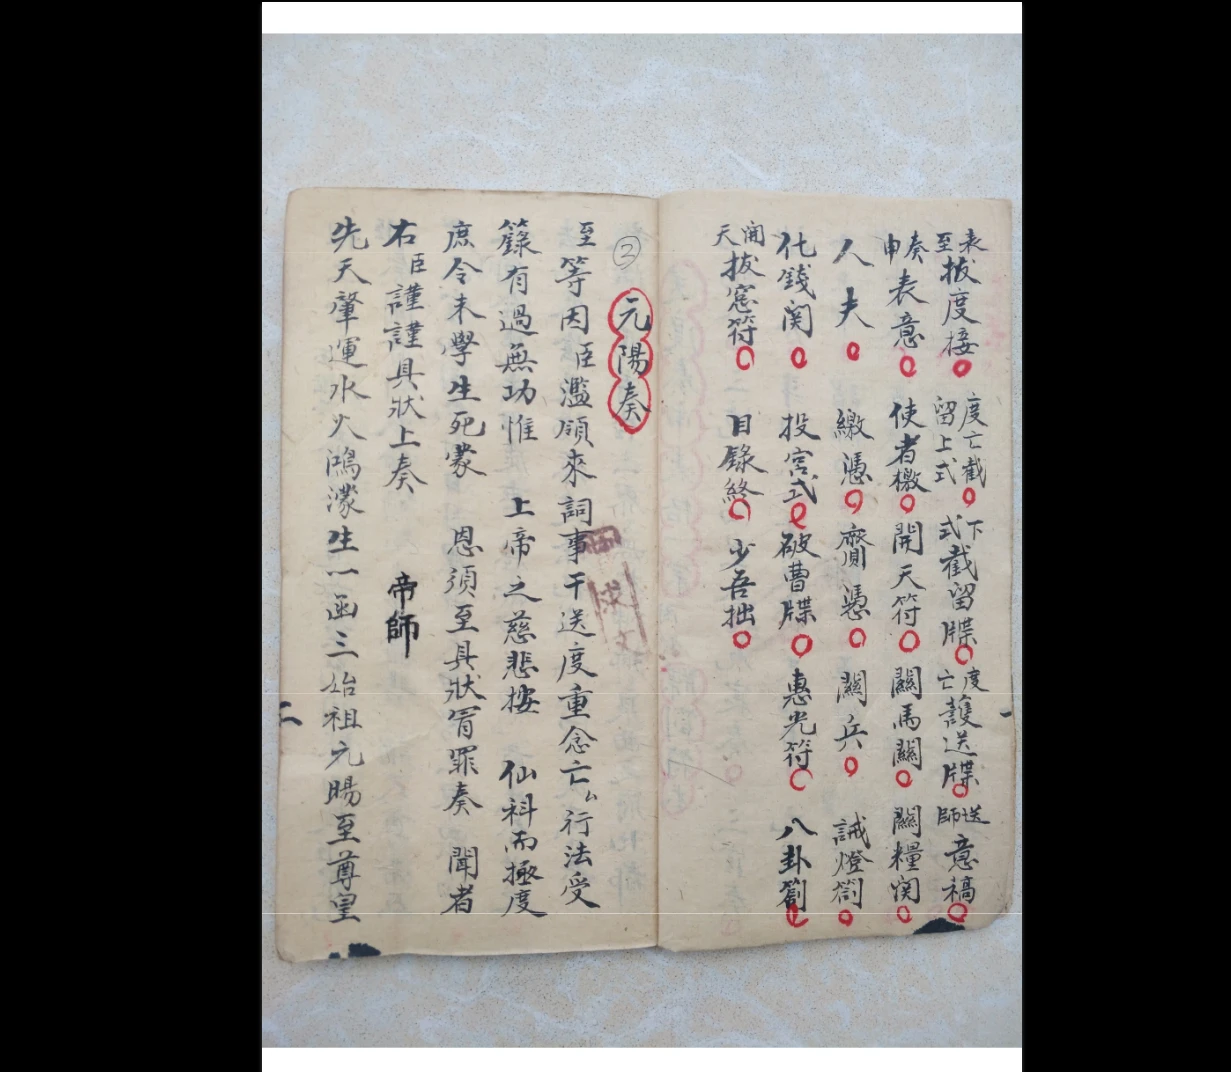 表至拔度接 度亡截留上式 下式截留牒 度亡護送牒 送師意稿
奏申表意 使者檄 開天符 關馬關 關糧関
人夫 繳憑 齎憑 關兵 誡燈劄
化錢関 投宮式 破曹牒 惠光符 八卦劄
開天拔窓符 目錄終 少吾拙
②
元陽奏
至等因臣濫領來詞事干送度重念亡厶行法受
籙有過無功惟 上帝之慈悲按 仙科而拯度
庶令未學生死蒙 恩須至具狀冐罪奏 聞者
右臣謹謹具狀上奏 帝師
先天肇運水火鴻濛生一函三始祖元陽至尊皇